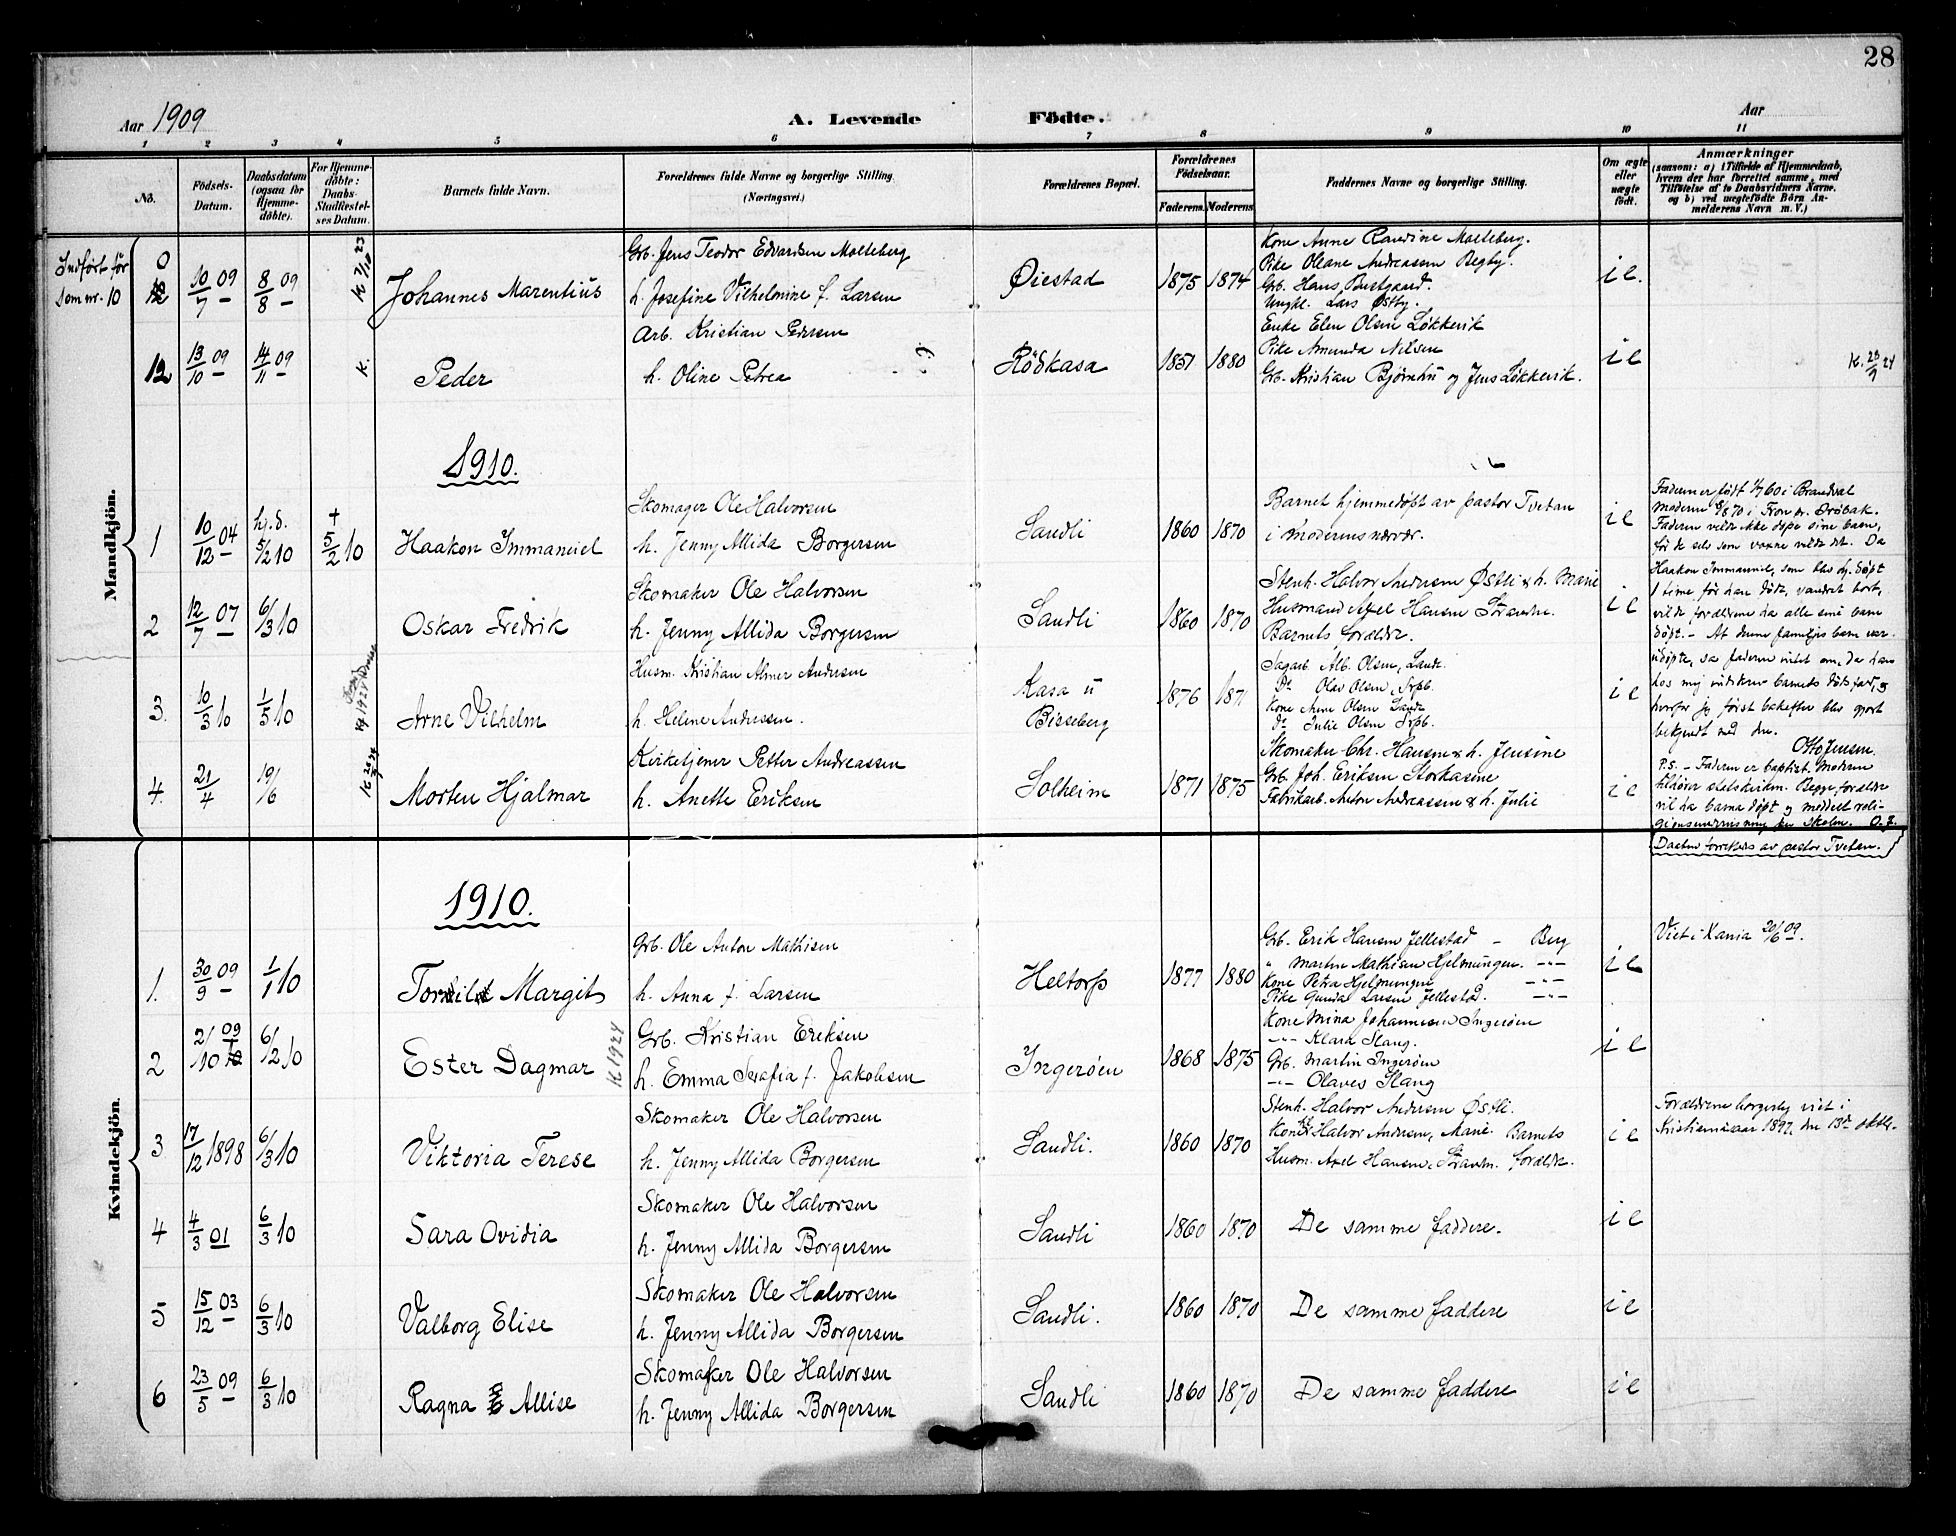 28
Aar 1909
A. Levende Födte.
Aar
1 2 3 4 5 6 7 8 9 10 11
No.
Födsels-
Datum.
Daabsdatum
(ogsaa for
Hjemme-
döbte).
For Hjemme-
döbte:
Daabs-
Stadfæstel-
ses Datum.
Barnets fulde Navn.
Forældrenes fulde Navne og borgerlige Stilling.
(Næringsvei.)
Forældrenes Bopæl.
Forældrenes
Födselsaar.
Faderens. Moderens.
Faddernes Navne og borgerlige Stilling.
Om ægte
eller
uægte
födt.
Anmærkninger
(saasom: a) i Tilfælde af Hjemmedaab,
hvem der har forrettet samme, med
Tilföielse af to Daabsvidners Navne.
og b) ved uægtefödte Börn An-
melderens Navn m. V.)
Mandkjön.
Indført før
som nr. 10
10/7 09
8/8 09
K 7/10 23
Johannes Marentius
Grb. Jens Teodor Edvardsen Molteberg
h. Josefine Vilhelmine f. Larsen
Øiestad
1875 1874
Kone Anne Randine Molteberg.
Pike Oleane Andreassen Begby.
Grb. Hans Bustgaard.
Ungk. Lars Østby.
i e.
12
13/10 09
14/11 09
K.
Peder
Arb. Kristian Pedersen
h. Oline Petrea
?
Rödkasa
1851 1880
Enke Elen Olsen Løkkevik
Pike Amunda Nilsen
Grb. Kristian Bjørnhu og Jens Løkkevik.
i e
K. 28/9 24
1910.
1
10/12 04
hj. d.
5/2 10
+
5/2 10
Haakon Immanuel
Skomager Ole Halvorsen
h. Jenny Allida Borgersen
Sandli
1860 1870
Barnet hjemmedøpt av pastor Tvetan
i moderens nærvær.
i e
Faderen er født 1/7 60 i Brandval
Moderen 9/8 70 i Fron pr. Drøbak.
Faderen vilde ikke døpe sine barn,
før de selv som voxne vilde det. Da
Haakon Immanuel, som blev hj. døpt
1 time før han døde, vandret bort,
vilde forældrene ha alle små barn
døpt. – At denne familjes barn var
udøpte, sa faderen intet om, da han
hos mig utskrev barnets dødsfad, og
hvorfor jeg først bakefter blev gjort
bekjendt med det.
Otto Jensen.
P.S. – Faderen er baptist. Moderen
tilhører statskirken. Begge forældre
vil ha barna døpt og meddelt reli-
gionsundervisning paa skolen. O.J.
Daaben forrettedes av pastor Tvetan.
2
12/7 07
6/3 10
Oskar Fredrik
Skomaker Ole Halvorsen
h. Jenny Allida Borgersen
Sandli
1860 1870
Stenh. Halvor Andersen Østli & h. Marie
Husmand Axel Hansen Stranden.
Barnets forældre.
i e
3.
10/3 10
1/5 10
Arne Vilhelm
Husm. Kristian Almer Andersen
h. Helene Andersen.
Kasa u
Bisseberg
1876 1871
Sagarb. Alb. Olsen, Lande
Do Olav Olsen, Srpb.
Kone Anne Olsen Lande
Do Julie Olsen Srpb.
i e
4.
21/4
19/6
Morten Hjalmar
Kirketjener Petter Andreassen
h. Anette Eriksen
Solheim
1871 1875
Skomaker Chr. Hansen & h. Jensine
Grb. Joh. Eriksen Storkasene
Fabrikarb. Anton Andreassen & h. Julie
i e
Kvindekjön.
1910.
1.
30/9 09
1/1 10
Margit
Grb. Ole Anton Mathisen
h. Anna f. Larsen
Heltorp
1877 1880
Grb. Erik Hansen Jellestad – Berg
" Martin Mathisen Hjelmungen. –"–
Kone Petra Hjelmungen –"–
Pike Gunda Larsen Jellestad. –"–
i e
Viet i Xania 20/6 09.
2
21/10 09
6/2 10
K 1924
Ester Dagmar
Grb. Kristian Eriksen
h. Emma Serafia f. Jakobsen
Ingerøen
1868 1875
Kone Mina Johannesen Ingerøen
–"– Klara Slang.
Grb. Martin Ingerøen
–"– Olaves Slang
i e
3
17/12 1898
6/3 10
Viktoria Terese
Skomaker Ole Halvorsen
h. Jenny Allida Borgersen
Sandli.
1860 1870
Stenh. Halvor Andersen Østli.
Kone Halvor Andersen, Marie. Barnets
Husm. Axel Hansen, Strandn. forældre.
i e
Forældrene borgerlig viet i
Kristiania aar 1897, den 13de oktbr.
4
4/3 01
6/3 10
Sara Ovidia
Skomaker Ole Halvorsen
h. Jenny Allida Borgersen
Sandli
1860 1870
De samme faddere.
i e
5
15/12 03
6/3 10
Valborg Elise
Skomaker Ole Halvorsen
h. Jenny Allida Borgersen
Sandli.
1860 1870
De samme faddere
i e
6
23/5 09
6/3 10
Ragna Allise
Skomaker Ole Halvorsen
h. Jenny Allida Borgersen
Sandli
1860 1870
De samme faddere
i e